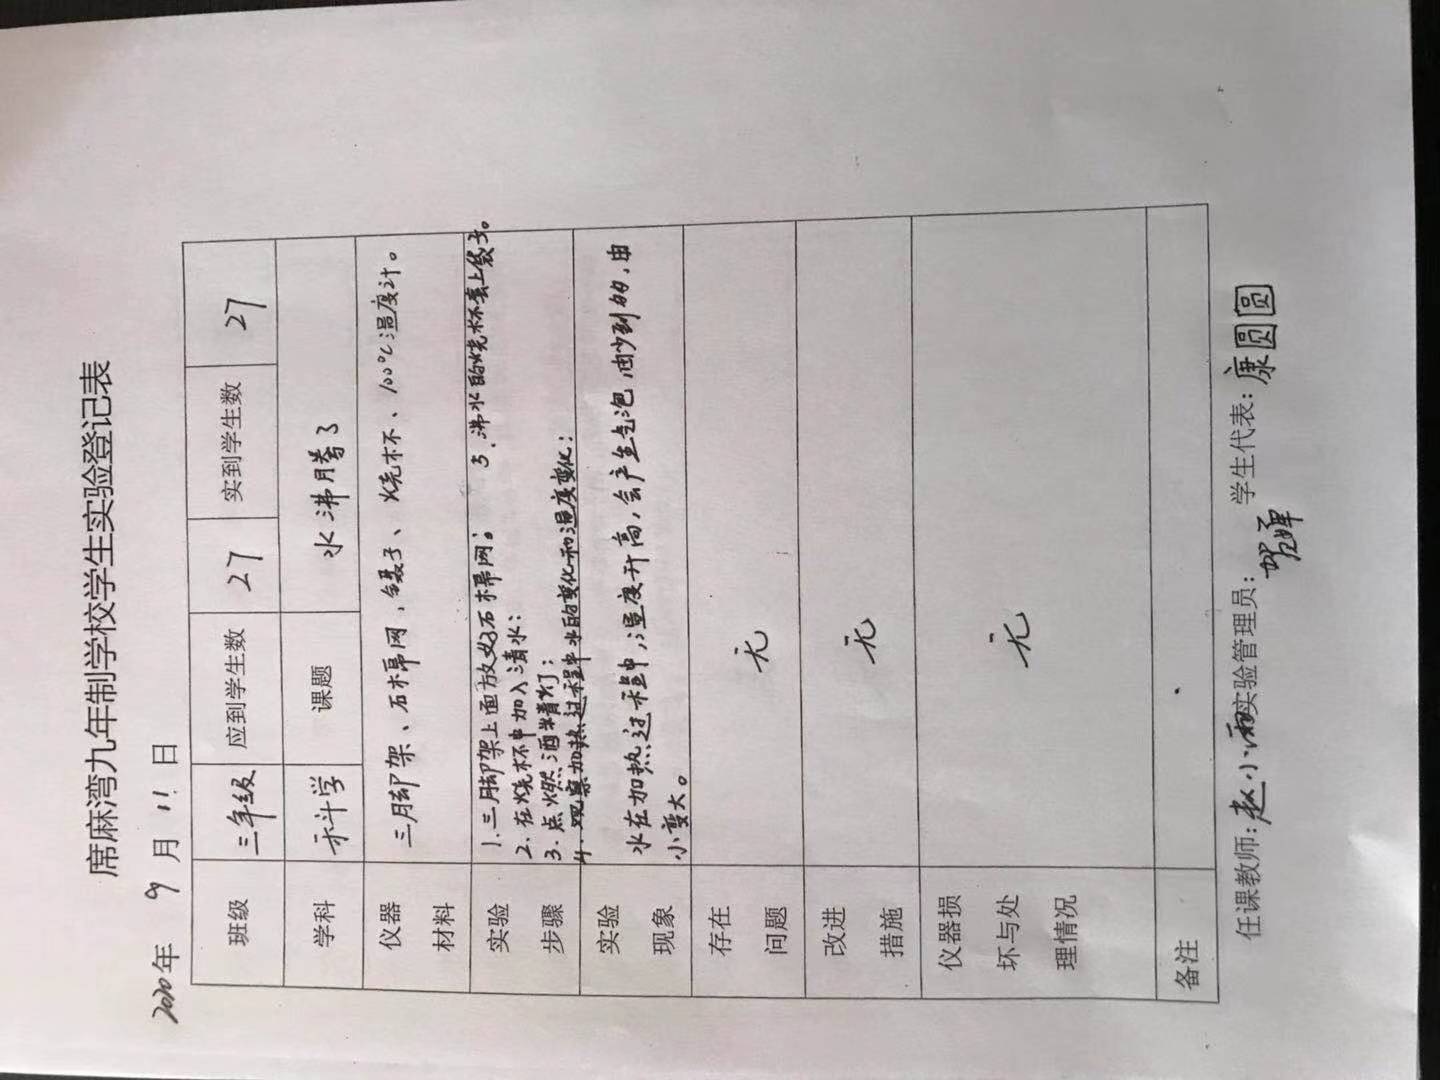 席麻湾九年制学校学生实验登记表
2020年 9 月 11 日
班级 三年级 应到学生数 27 实到学生数 27
学科 科学 课题 水沸腾了
仪器材料 三脚架、石棉网,镊子、烧杯、100℃温度计。
实验步骤 1.三脚架上面放好石棉网; 5.沸水的烧杯套上袋子。
2.在烧杯中加入清水;
3.点燃酒精灯;
4.观察加热过程中水的变化和温度变化;
实验现象 水在加热过程中,温度升高,会产生气泡,由少到多,由
小变大。
存在问题 无
改进措施 无
仪器损坏与处理情况 无
备注
任课教师:赵小雨 实验管理员: 学生代表:康圆圆